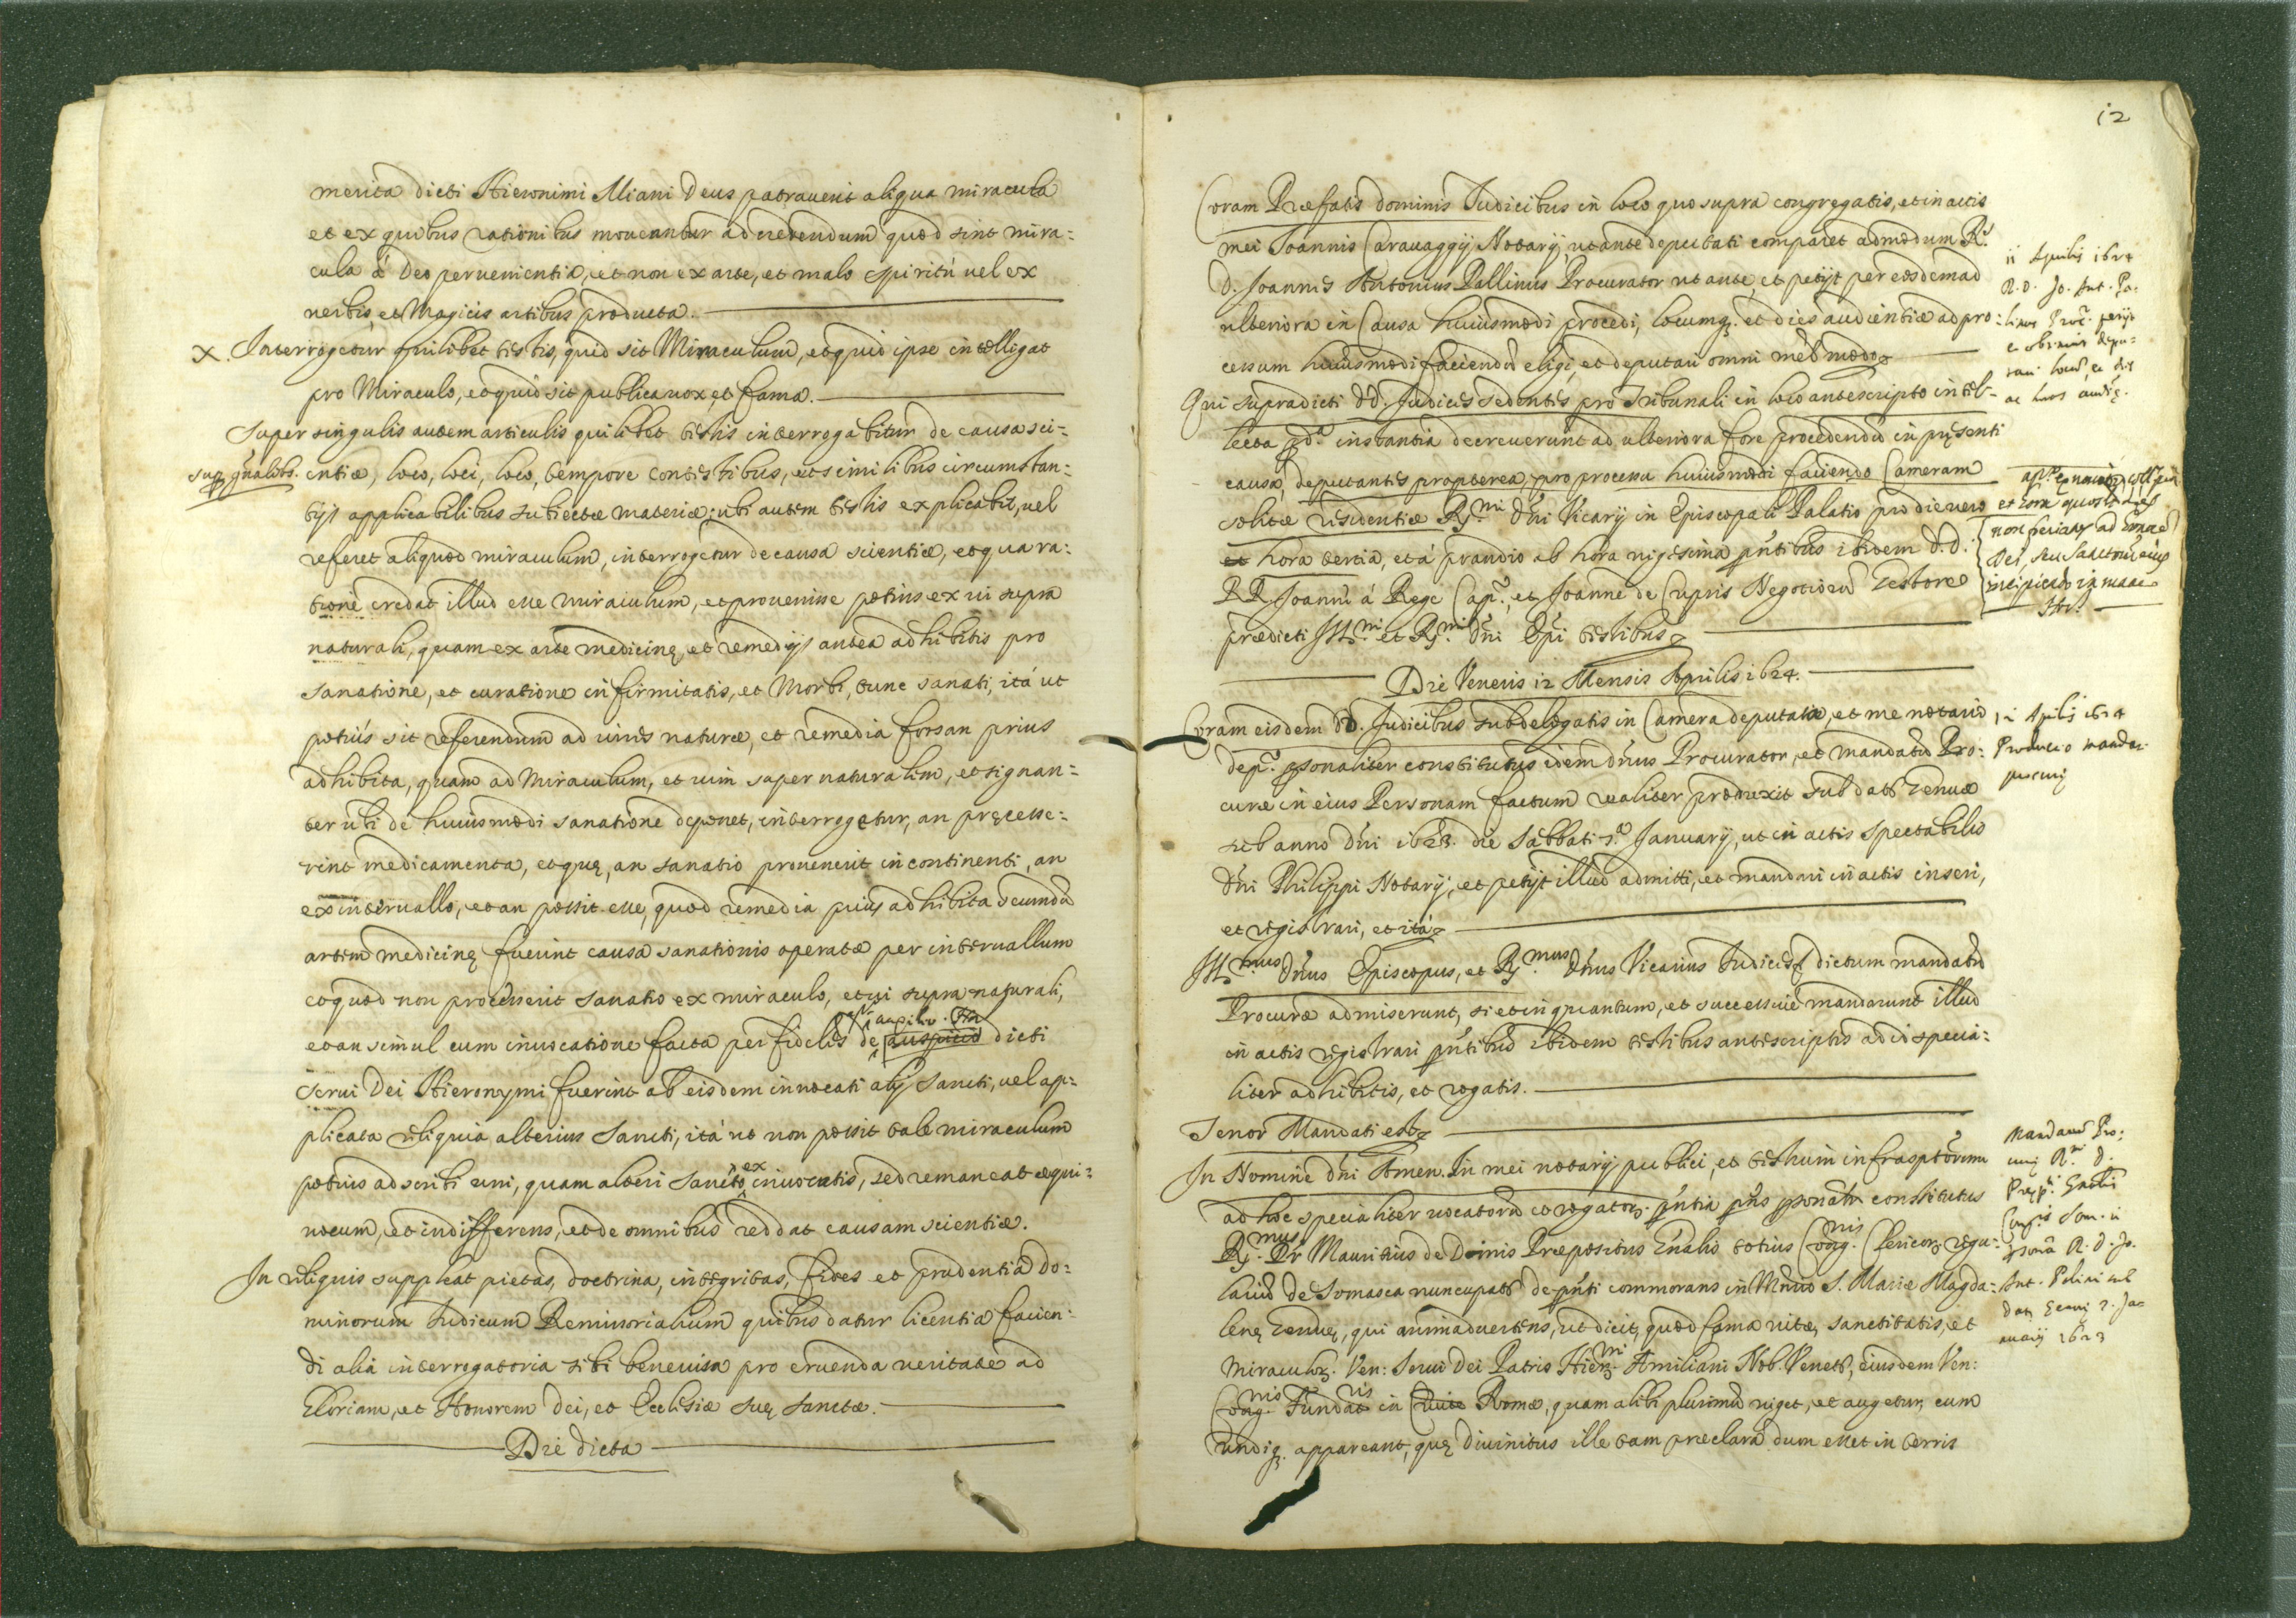 merita dicti Hieronimi Miani Deus patrauerit aliqua miracula
et ex quibus rationibus moueantur ad credendum quod sint mira=
cula á Deo peruenientia, et non ex arte, et malo spiritú uel ex
uerbis, et Magicis artibus producta.
X. Interrogetur quilibet testis, quid sit Miraculum, et quid ipse intelligat
pro Miraculo, et quid sit publica uox, et fama.
Super singulis autem articulis quilibet testis interrogabitur de causa sci=
entiæ, loco, loci, loco, tempore contestibus, et similibus circumstan=
tijs applicabilibus subiectæ materiæ; ubi autem testis explicabit, uel
referet aliquod miraculum, interrogetur de causa scientiæ, et qua ra=
tione credat illud esse miraculum, et prouenisse potius ex ui supra
naturali, quam ex arte medicinę, et remedijs antea adhibitis pro
sanatione, et curatione infirmitatis, et Morbi, tunc sanati, itá ut
potiùs sit referendum ad uires naturæ, et remedia forsan prius
adhibita, quam ad Miraculum, et uim supernaturalem, et signan=
ter ubi de huiusmodi sanatione deponet, interrogetur, an pręcesse=
rint medicamenta, et quę, an sanatio prouenerit incontinenti, an
ex interuallo, et an possit esse, quod remedia prius adhibita secundũ
artem medicinę fuerint causa sanationis operatæ per interuallum
et quod non processerit sanatio ex miraculo, et ui supra naturali,
et an simul cum inuocatione facta per fideles de auspicio dicti
auxilio
serui Dei Hieronymi fuerint ab eisdem inuocati alij Sancti, uel ap=
plicata reliquia alterius Sancti, itá ut non possit tale miraculum
potius adscribi uni, quam alteri Sancto ex inuocatis, sed remaneat equi=
uocum, et indifferens, et de omnibus reddat causam scientiæ.
In reliquis suppleat pietas, doctrina, integritas, fides et prudentia Do=
minorum Iudicum Remissorialium quibus datur licentia facien=
di alia interrogatoria sibi beneuisa pro eruenda ueritate ad
Gloriam, et Honorem Dei, et Ecclesiæ suę Sanctæ.
Die dicta
12
Coram Præfatis dominis Iudicibus in loco quo supra congregatis, et in actis
mei Ioannis Carauaggij Notarij, ut ante deputati comparet admodum R.
D. Ioannes Antonius Pallinus Procurator ut ante, et petijt per eosdem ad
ulteriora in Causa huiusmodi procedi, locumq. et dies audientiæ ad pro=
cessum huiusmodi faciendũ eligi, et deputari omni meł. modo
Qui supradicti DD. Iudices sedentes pro Tribunali in loco antescripto intel=
lecta pd.ª instantia decreuerunt ad ulteriora fore procedendũ in pręsenti
causa, deputantes propterea, pro processu huiusmodi faciendo Cameram
solitæ residentiæ R.mi Dñi Vicarij in Episcopali Palatio pro die uero
et hora tertia, et á prandio ab hora uigesima pñtibus ibidem D.D.
RR. Ioanne á Rege Cap., et Ioanne de Cupris Negotiorũ Gestore
prædicti Ill.mi et R.mi Dñi Epi testibus
Die Veneris 12 Mensis Aprilis 1624.
Coram eisdem DD. Iudicibus subdelegatis in Camera deputata, et me notario
dep. psonaliter constitutus idem dñus Procurator, et mandatũ Pro=
curæ in eius Personam factum realiter produxit sub dat. Genuæ
sub anno Dñi 1623. die Sabbati 7.ª Ianuarij, ut in actis Spectabilis
Dñi Philippi Notarij, et petijt illud admitti, et mandari in actis inseri,
et registrari, et itá
Ill.mus Dñus Episcopus, et R.mus Dñus Vicarius Iudices dictum mandatũ
Procuræ admiserunt, si et in quantum, et successiuè mandarunt illud
in actis registrari pñtibus ibidem testibus antescriptis ad id specia=
liter adhibitis, et rogatis.
Tenor Mandati est
In Nomine Dñi Amen. In mei notarij publici, et testium infrascptorum
ad hoc specialiter uocatorũ et rogator. pñtia pñs psonalr constitutus
R.mus Pr Mauritius de Dominis Præpositus Gnalis totius Cong.nis Clericor. regu=
lariũ de Somasca nuncupat. de pñti commorans in Mñrio S. Mariæ Magda=
lenę Genuę, qui animaduertens, ut dicit, quod fama uitę, sanctitatis, et
miraculor. Ven: Serui Dei Patris Hier.mi Æmiliani Nob. Veneti, eiusdem Ven:
Cong.nis Fundat.ris in Ciuit. Romæ, quam alibi plurimũ uiget, et augetur, cum
undiq. appareant, quę diuinitus ille tam præclara dum esset in terris
11 Aprilis 1624
R.D. Jo. Ant. Pa=
linus Proc. petijt
12 Aprilis 1624
Productio mandati
procurę
Mandatũ Pro=
curę R.mi D.
Pręp.ti Gnalis
Cong.is Som. in
psonã R.D. Jo.
Ant. Palini sub
Dat. Genuę 7. Ja=
nuarij 1623